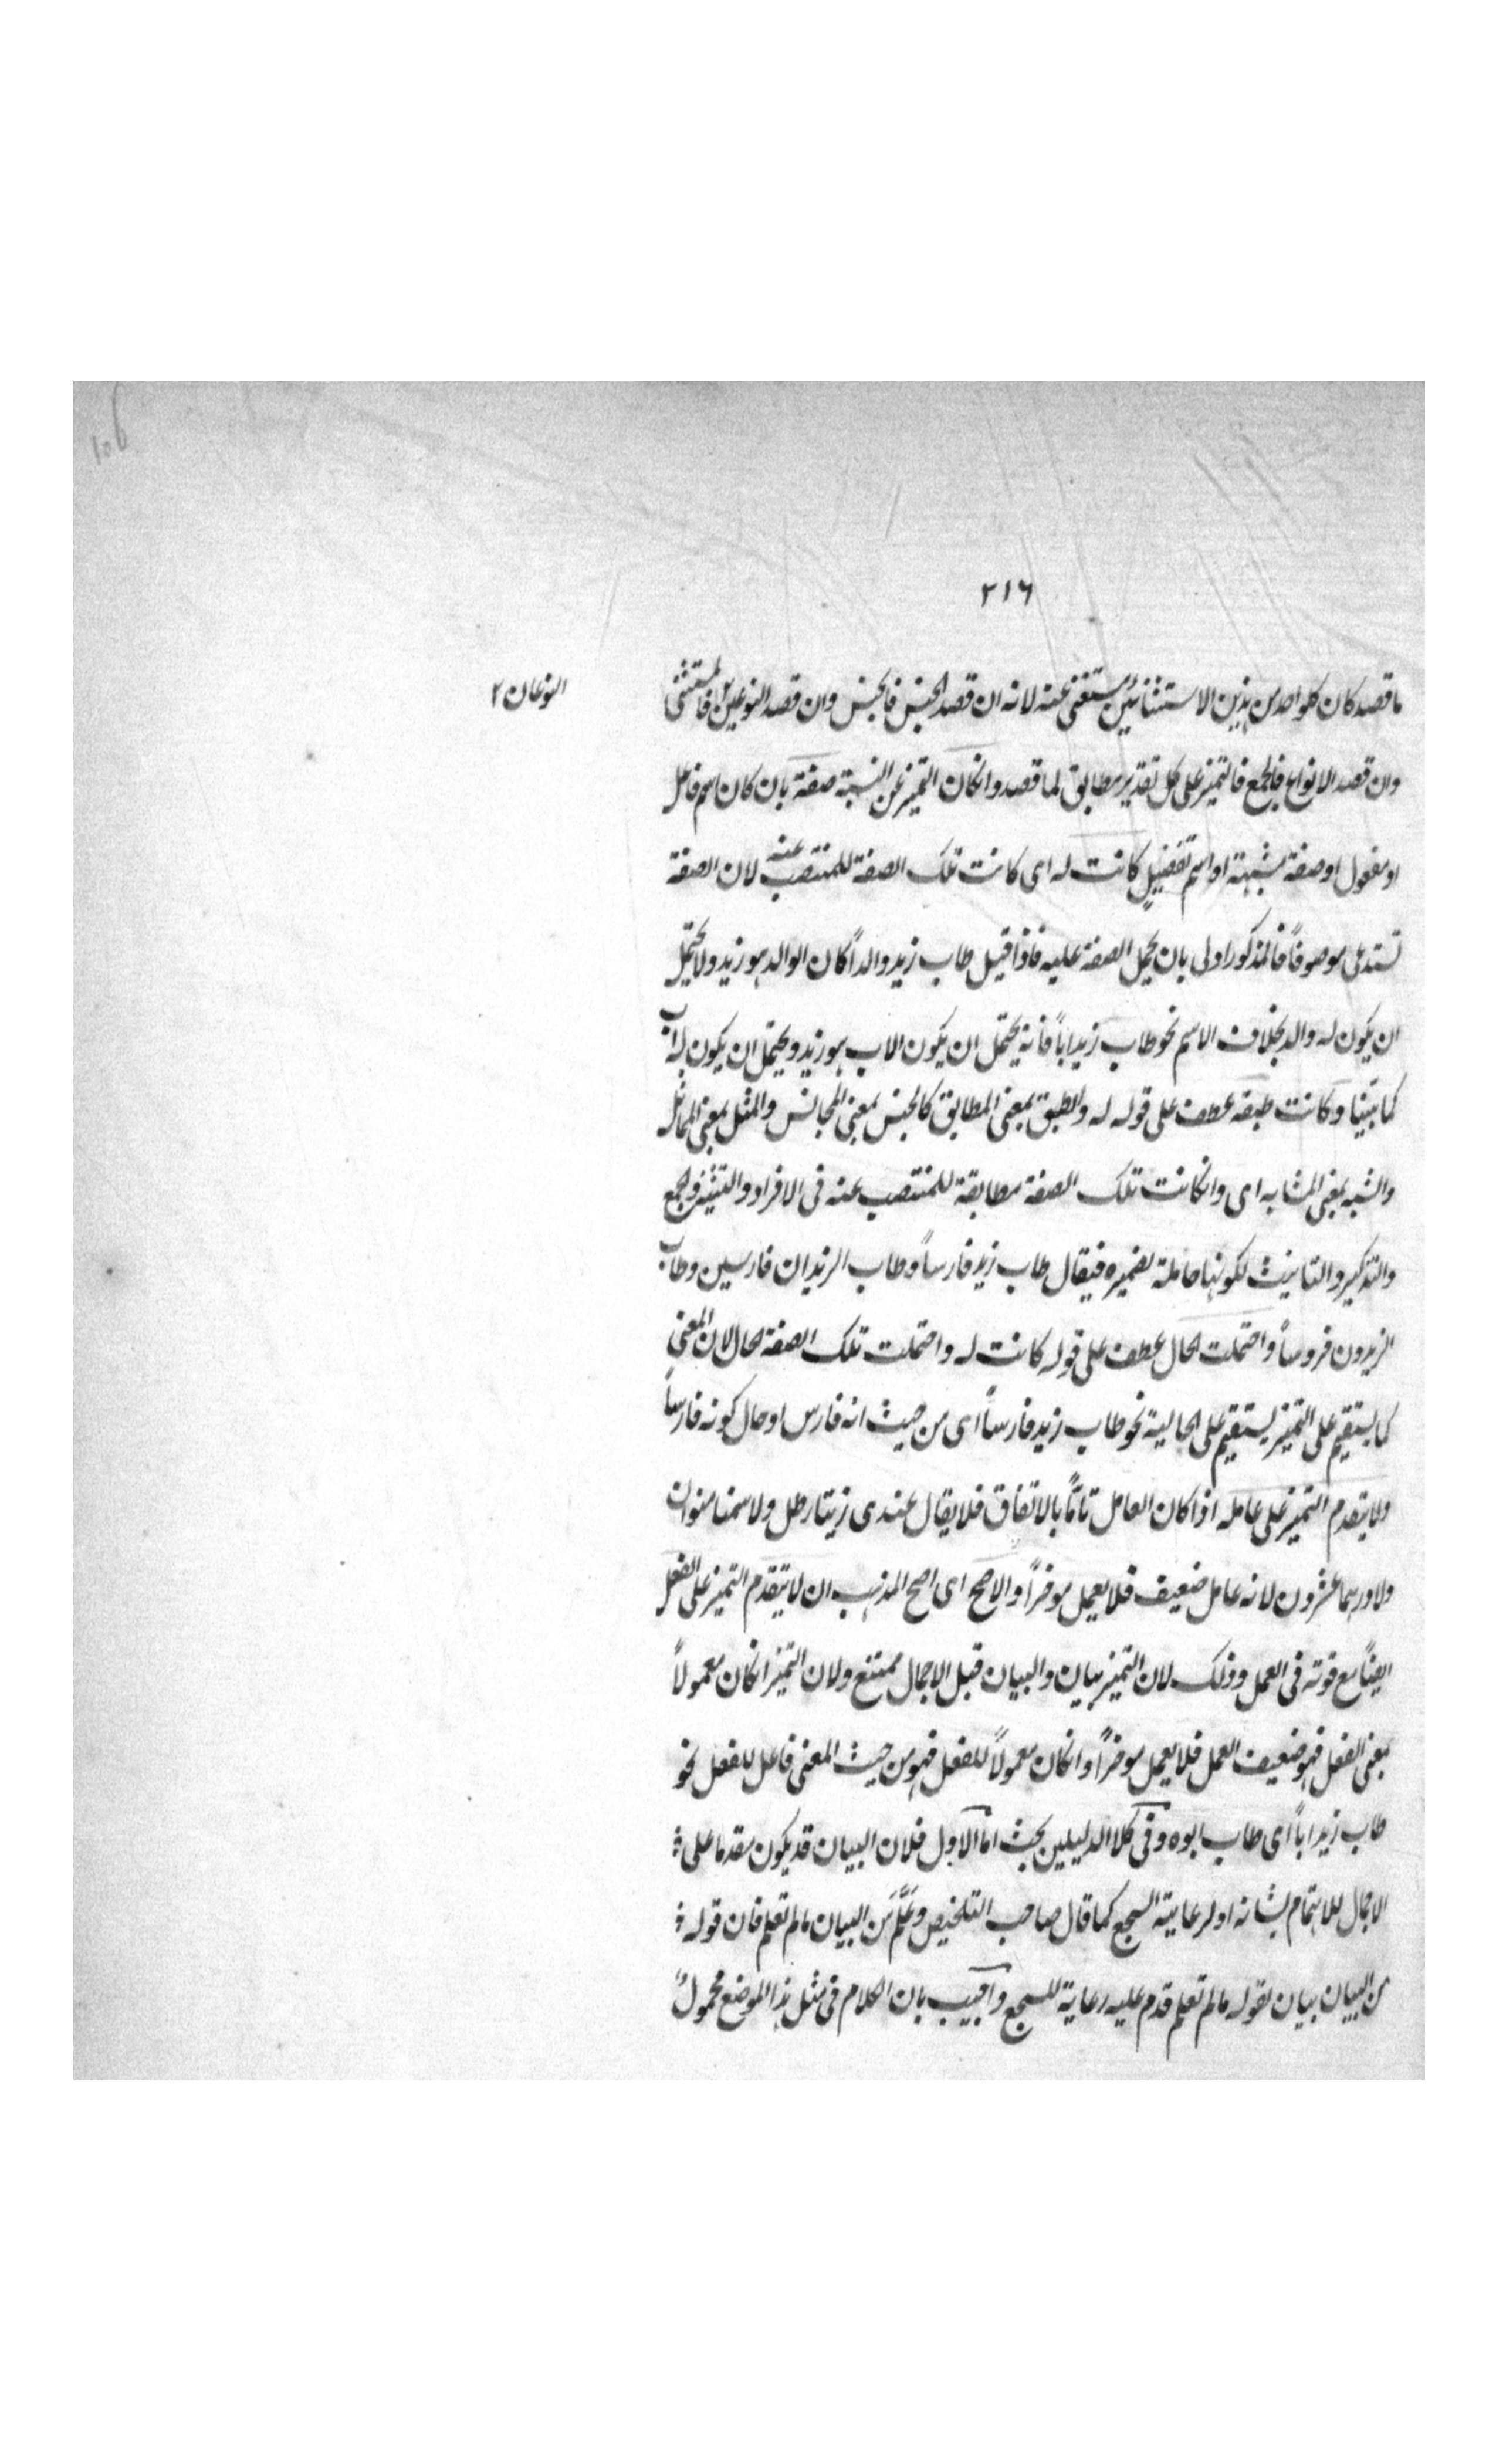 ٢١٦
ما قصد كان كلواحد من هذين الاستثنائين مستغنى عنه لانه ان قصد الجنس فالجنس وان قصد النوعين فالمستثنى
النوعان ٢
وان قصد الانواع فالجمع فالتميز على كل تقدير مطابق لما قصد وانكان التميز عن النسبة صفة بان كان اسم فاعل
او مفعول او صفة مشبهة او اسم تفضيل كانت له اى كانت تلك الصفة للمنتصب عنه لان الصفة
تستدعى موصوفاً فالمذكور اولى بان يحمل الصفة عليه فاذا قيل طاب زيد والداً كان الوالد هو زيد ولا يحتمل
ان يكون له والد بخلاف الاسم نحو طاب زيد اباً فانه يحتمل ان يكون الاب هو زيد ويحتمل ان يكون له اب
كما بيّنا وكانت طبقه عطف على قوله له والطبق بمعنى المطابق كالجنس بمعنى المجانس والمثل بمعنى المماثل
والشبه بمعنى المشابه اى وانكانت تلك الصفة مطابقة للمنتصب عنه فى الافراد والتثنية والجمع
والتذكير والتانيث لكونها حاملة لضميره فيقال طاب زيد فارساً وطاب الزيدان فارسين وطاب
الزيدون فروساً واحتملت الحال عطف على قوله كانت له واحتملت تلك الصفة الحال لان المعنى
كما يستقيم على التميز يستقيم على الحالية نحو طاب زيد فارساً اى من حيث انه فارس او حال كونه فارساً
ولا يتقدم التميز على عامله اذا كان العامل تامًّا بالاتفاق فلا يقال عندى زيتا رطل ولا سمنا منوان
ولا درهما عشرون لانه عامل ضعيف فلا يعمل موخراً والاصح اى اصح المذهب ان لا يتقدم التميز على الفعل
ايضاً مع قوته فى العمل وذلك لان التميز بيان والبيان قبل الاجمال ممتنع ولان التميز انكان معمولاً
بمعنى الفعل فهو ضعيف العمل فلا يعمل موخراً وانكان معمولاً للفعل فهو من حيث المعنى فاعل للفعل نحو
طاب زيد اباً اى طاب ابوه وفى كلا الدليلين بحث اما الاول فلان البيان قد يكون مقدما على
الاجمال للاهتمام بشانه او لرعاية السجع كما قال صاحب التلخيص وعَلَّمَ من البيان مالم تعلم فان قوله
من البيان بيان لقوله مالم تعلم قدم عليه رعاية للسجع واجيب بان الكلام فى مثل هذا الموضع محمولٌ